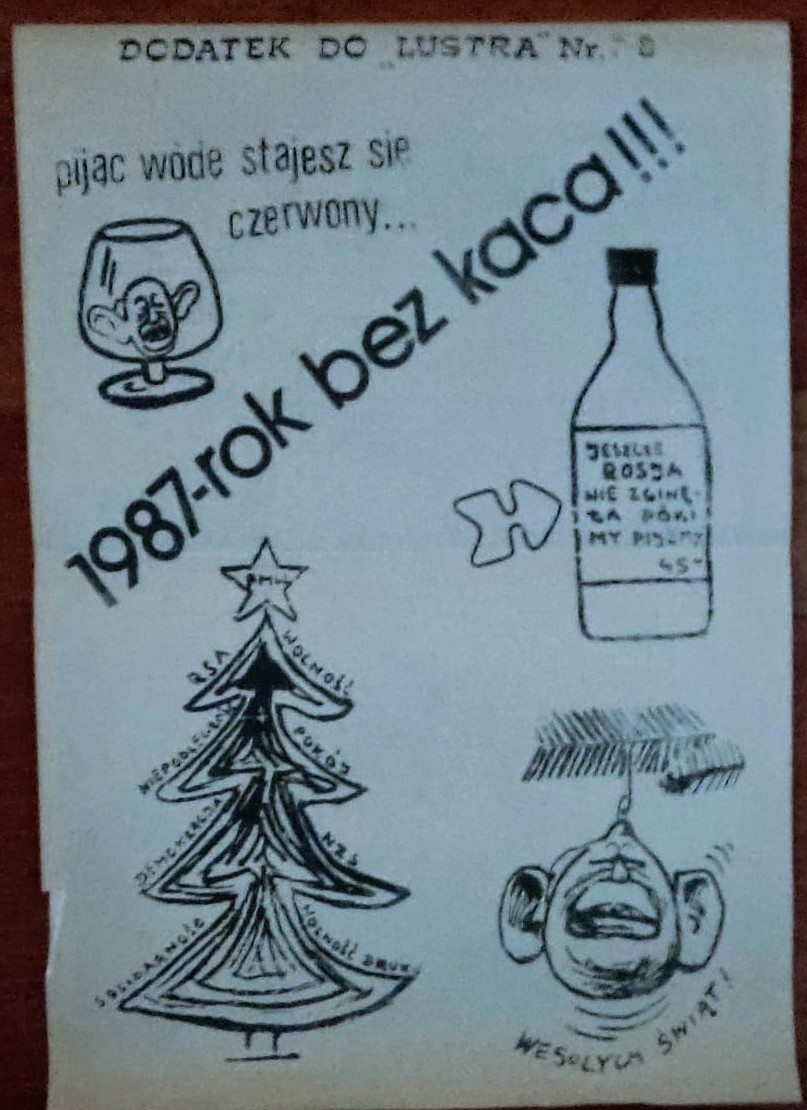 DODATEK DO „LUSTRA" Nr. 8
pijąc wódę stajesz się
czerwony...
1987-rok bez kaca!!!
JESZCZE
ROSJA
NIE ZGINĘ-
ŁA PÓKI
MY PIJEMY
45-
RSA
WOLNOŚĆ
NIEPODLEGŁOŚĆ
POKÓJ
DEMOKRACJA
NZS
SOLIDARNOŚĆ
WOLNOŚĆ DRUKU
WESOŁYCH ŚWIĄT!